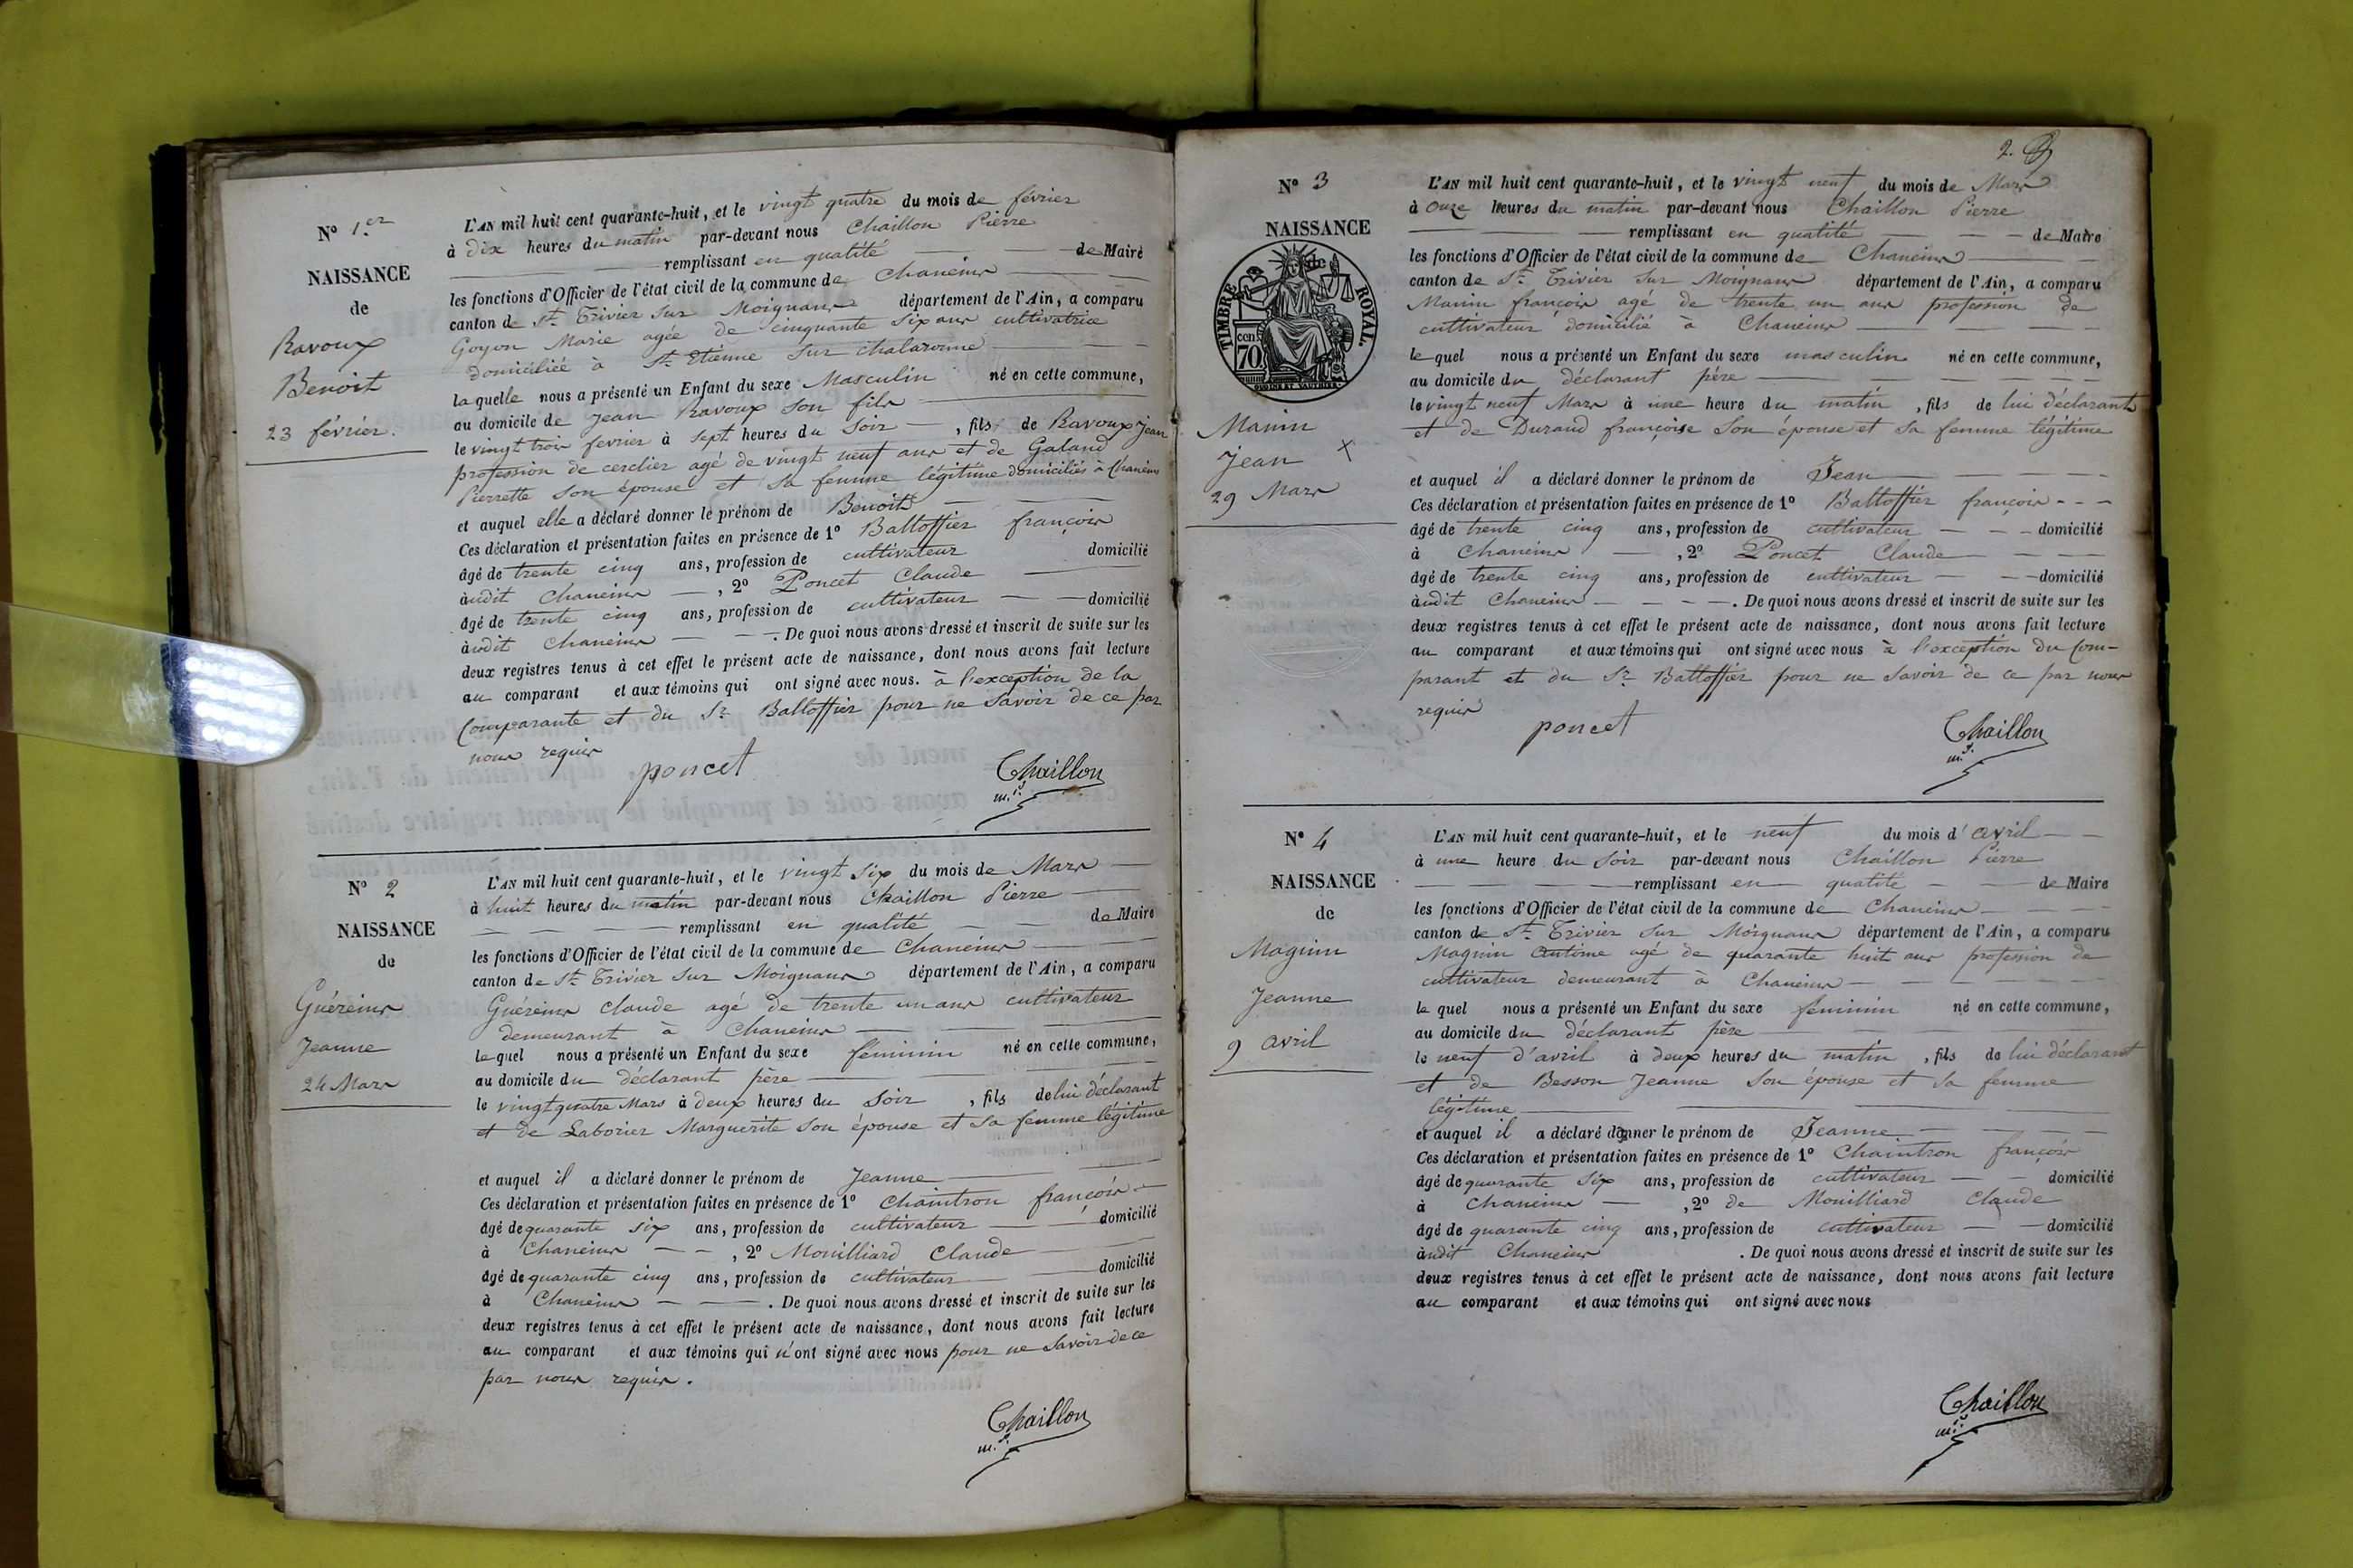 N° 1.er
NAISSANCE
de
Ravoux
Benoit
23 février.
L'AN mil huit cent quarante-huit, et le vingt quatre du mois de février
à dix heures du matin par-devant nous Chaillon Pierre
remplissant en qualité de Maire
les fonctions d'Officier de l'état civil de la commune de Chaneins
canton de St. Trivier sur Moignans département de l'Ain, a comparu
Goyon Marie agée de cinquante six ans cultivatrice
domiciliée à St. Etienne sur chalaronne
laquelle nous a présenté un Enfant du sexe Masculin né en cette commune,
au domicile de Jean Ravoux son fils
le vingt trois fevrier à sept heures du soir, fils de Ravoux Jean
profession de cerclier agé de vingt neuf ans et de Galand
Pierrette son épouse et sa femme légitime domiciliés à Chaneins
et auquel elle a déclaré donner le prénom de Benoit
Ces déclaration et présentation faites en présence de 1° Balloffier françois
âgé de trente cinq ans, profession de cultivateur domicilié
àudit Chaneins, 2° Poncet Claude
âgé de trente cinq ans, profession de cultivateur domicilié
àudit Chaneins. De quoi nous avons dressé et inscrit de suite sur les
deux registres tenus à cet effet le présent acte de naissance, dont nous avons fait lecture
au comparant et aux témoins qui ont signé avec nous. à l'exception de la
Comparante et du Sr. Balloffier pour ne savoir de ce par
nous requis
poncet
Chaillon
m.
N° 2
NAISSANCE
de
Guéreins
Jeanne
24 Mars
L'AN mil huit cent quarante-huit, et le vingt six du mois de Mars
à huit heures du matin par-devant nous Chaillon Pierre
remplissant en qualité de Maire
les fonctions d'Officier de l'état civil de la commune de Chaneins
canton de St. Trivier sur Moignans département de l'Ain, a comparu
Guéreins claude agé de trente un ans cultivateur
demeurant à Chaneins
lequel nous a présenté un Enfant du sexe féminin né en cette commune,
au domicile du déclarant père
le vingt quatre Mars à deux heures du soir, fils de lui déclarant
et de Laborier Marguerite son épouse et sa femme légitime
et auquel il a déclaré donner le prénom de Jeanne
Ces déclaration et présentation faites en présence de 1° Chaintron françois
âgé de quarante six ans, profession de cultivateur domicilié
à Chaneins, 2° Mouilliard Claude
âgé de quarante cinq ans, profession de cultivateur domicilié
à Chaneins. De quoi nous avons dressé et inscrit de suite sur les
deux registres tenus à cet effet le présent acte de naissance, dont nous avons fait lecture
au comparant et aux témoins qui n'ont signé avec nous pour ne savoir de ce
par nous requis.
Chaillon
m.
2.
N° 3
NAISSANCE
de
TIMBRE ROYAL
70 cen.
Manin
Jean X
29 Mars
L'AN mil huit cent quarante-huit, et le vingt neuf du mois de Mars
à onze heures du matin par-devant nous Chaillon Pierre
remplissant en qualité de Maire
les fonctions d'Officier de l'état civil de la commune de Chaneins
canton de St. Trivier sur Moignans département de l'Ain, a comparu
Manin françois agé de trente un ans profession de
cultivateur domicilié à Chaneins
lequel nous a présenté un Enfant du sexe masculin né en cette commune,
au domicile du déclarant père
le vingt neuf Mars à une heure du matin, fils de lui déclarant
et de Durand françoise son épouse et sa femme légitime
et auquel il a déclaré donner le prénom de Jean
Ces déclaration et présentation faites en présence de 1° Balloffier françois
âgé de trente cinq ans, profession de cultivateur domicilié
à Chaneins, 2° Poncet Claude
âgé de trente cinq ans, profession de cultivateur domicilié
àudit Chaneins. De quoi nous avons dressé et inscrit de suite sur les
deux registres tenus à cet effet le présent acte de naissance, dont nous avons fait lecture
au comparant et aux témoins qui ont signé avec nous à l'exception du Com-
parant et du Sr. Balloffier pour ne savoir de ce par nous
requis
poncet
Chaillon
m.
N° 4
NAISSANCE
de
Magnin
Jeanne
9 avril
L'AN mil huit cent quarante-huit, et le neuf du mois d'avril
à une heure du soir par-devant nous Chaillon Pierre
remplissant en qualité de Maire
les fonctions d'Officier de l'état civil de la commune de Chaneins
canton de St. Trivier sur Moignans département de l'Ain, a comparu
Magnin Antoine agé de quarante huit ans profession de
cultivateur demeurant à Chaneins
lequel nous a présenté un Enfant du sexe féminin né en cette commune,
au domicile du déclarant père
le neuf d'avril à deux heures du matin, fils de lui déclarant
et de Besson Jeanne son épouse et sa femme
légitime
et auquel il a déclaré donner le prénom de Jeanne
Ces déclaration et présentation faites en présence de 1° Chaintron françois
âgé de quarante six ans, profession de cultivateur domicilié
à Chaneins, 2° de Mouilliard Claude
âgé de quarante cinq ans, profession de cultivateur domicilié
àudit Chaneins. De quoi nous avons dressé et inscrit de suite sur les
deux registres tenus à cet effet le présent acte de naissance, dont nous avons fait lecture
au comparant et aux témoins qui ont signé avec nous
Chaillon
m.